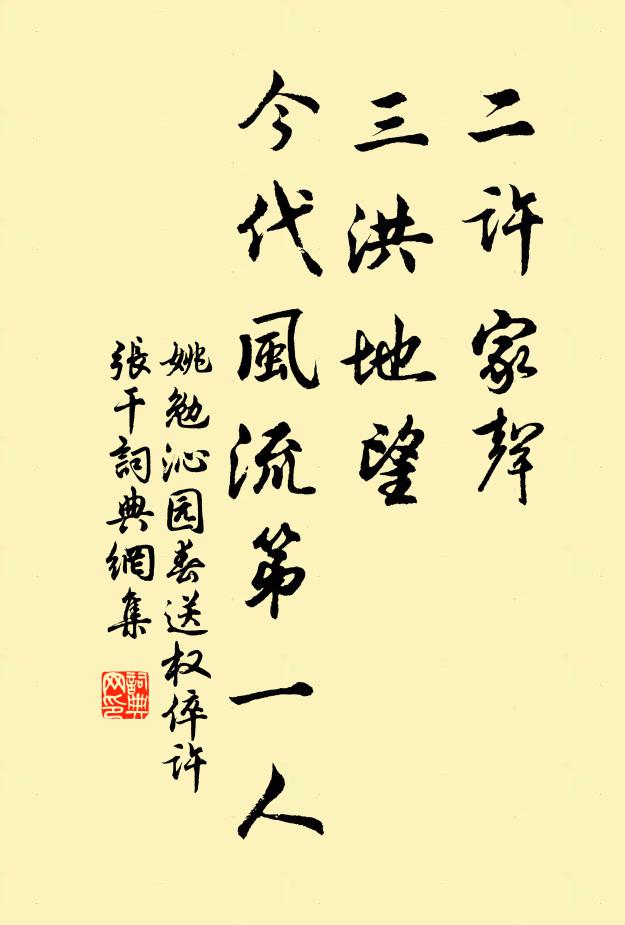 二許家聲
三洪地望
今代風流第一人
姚勉沁园春送权倅许
張干詞典網集
詞典网印